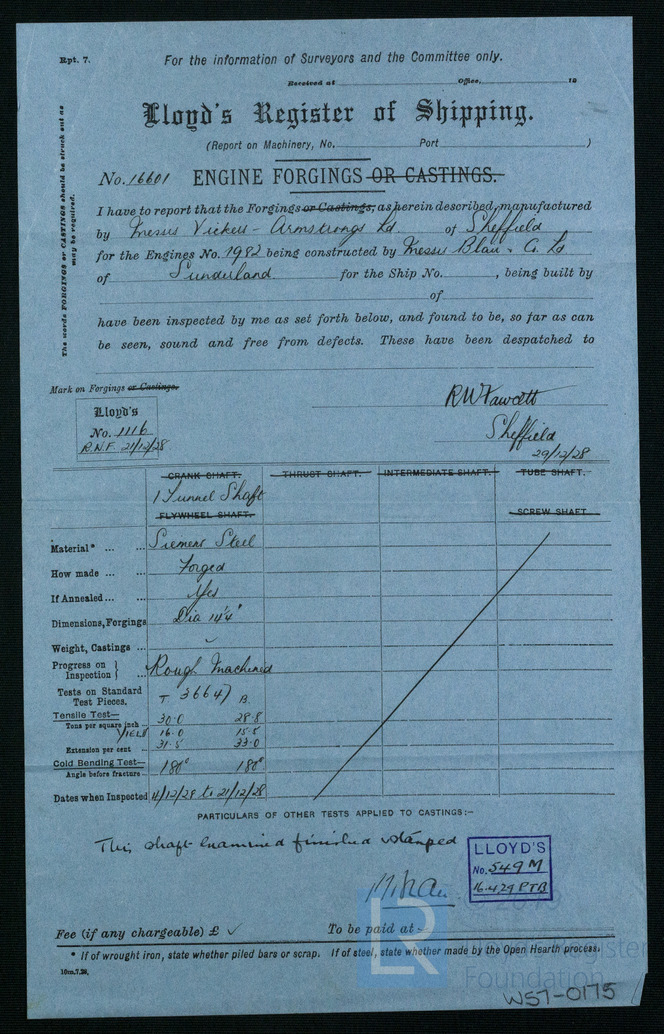 Rpt. 7.
For the information of Surveyors and the Committee only.
Received at Office, 19
Lloyd's Register of Shipping.
(Report on Machinery, No. Port )
No. 16601 ENGINE FORGINGS OR CASTINGS.
The words FORGINGS or CASTINGS should be struck out as may be required.
I have to report that the Forgings or Castings, as herein described, manufactured
by Messrs Vickers-Armstrongs Ld of Sheffield
for the Engines No. 1982 being constructed by Messrs Blair & Co. Ld
of Sunderland for the Ship No. , being built by
of
have been inspected by me as set forth below, and found to be, so far as can
be seen, sound and free from defects. These have been despatched to
Mark on Forgings or Castings.
Lloyd's
No. 1116
R.N.F. 21/12/28
RW Fawcett
Sheffield
29/12/28
CRANK SHAFT. THRUST SHAFT. INTERMEDIATE SHAFT. TUBE SHAFT.
1 Tunnel Shaft
FLYWHEEL SHAFT. SCREW SHAFT
Material* ... ... Siemens Steel
How made ... ... Forged
If Annealed ... ... Yes
Dimensions, Forgings Dia 14¼"
Weight, Castings ...
Progress on Inspection } ... Rough Machined
Tests on Standard Test Pieces. T 3664) B.
Tensile Test—
Tons per square inch 30.0 28.8
YIELD 16.0 15.5
Extension per cent 31.5 33.0
Cold Bending Test— 180° 180°
Angle before fracture
Dates when Inspected 4/12/28 to 21/12/28
PARTICULARS OF OTHER TESTS APPLIED TO CASTINGS:—
This shaft examined finished & stamped
LLOYD'S
No. 549 M
16.4.29 PTB
Fee (if any chargeable) £ To be paid at
* If of wrought iron, state whether piled bars or scrap. If of steel, state whether made by the Open Hearth process.
10m.7,28.
LR
Foundation
W57-0175